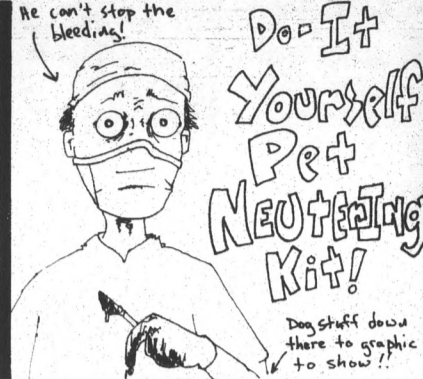 He can't stop the
bleeding!
Do-It
Yourself
Pet
NEUTERING
Kit!
Dog stuff down
there to graphic
to show!!